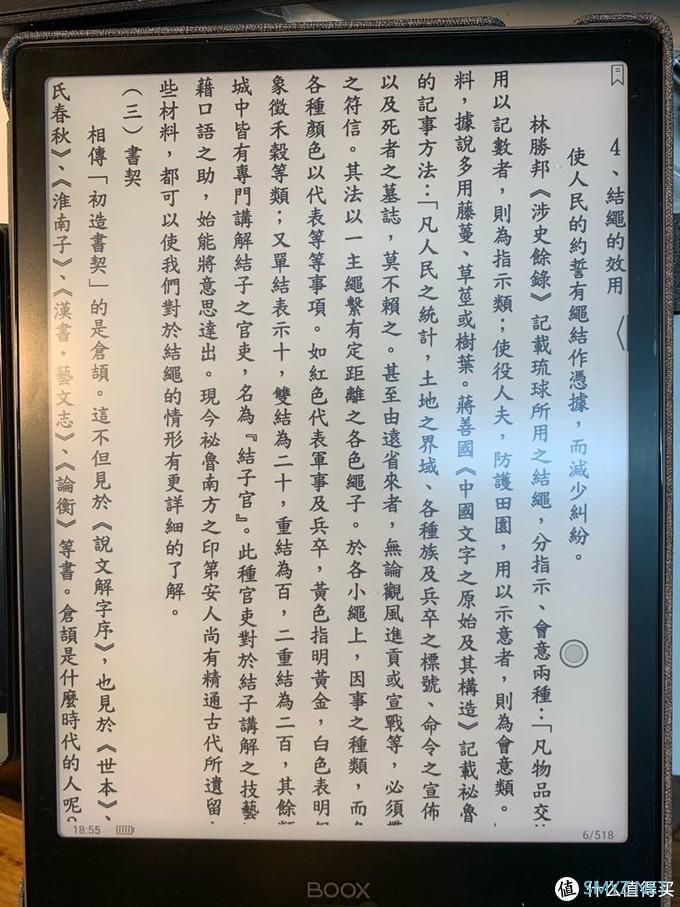 4、結繩的效用
使人民的約誓有繩結作憑據，而減少糾紛。
林勝邦《涉史餘錄》記載琉球所用之結繩，分指示、會意兩種：「凡物品交
用以記數者，則為指示類；使役人夫，防護田園，用以示意者，則為會意類。
料，據說多用藤蔓、草莖或樹葉。蔣善國《中國文字之原始及其構造》記載祕魯
的記事方法：「凡人民之統計，土地之界域、各種族及兵卒之標號、命令之宣佈
以及死者之墓誌，莫不賴之。甚至由遠省來者，無論觀風進貢或宣戰等，必須
之符信。其法以一主繩繫有定距離之各色繩子。於各小繩上，因事之種類，而
各種顏色以代表等等事項。如紅色代表軍事及兵卒，黃色指明黃金，白色表明
象徵禾穀等類；又單結表示十，雙結為二十，重結為百，二重結為二百，其餘
城中皆有專門講解結子之官吏，名為『結子官』。此種官吏對於結子講解之技藝
藉口語之助，始能將意思達出。現今祕魯南方之印第安人尚有精通古代所遺留
些材料，都可以使我們對於結繩的情形有更詳細的了解。
（三）書契
相傳「初造書契」的是倉頡。這不但見於《說文解字序》，也見於《世本》、
氏春秋》、《淮南子》、《漢書．藝文志》、《論衡》等書。倉頡是什麼時代的人呢？
18:55
6/518
BOOX
值 什么值得买